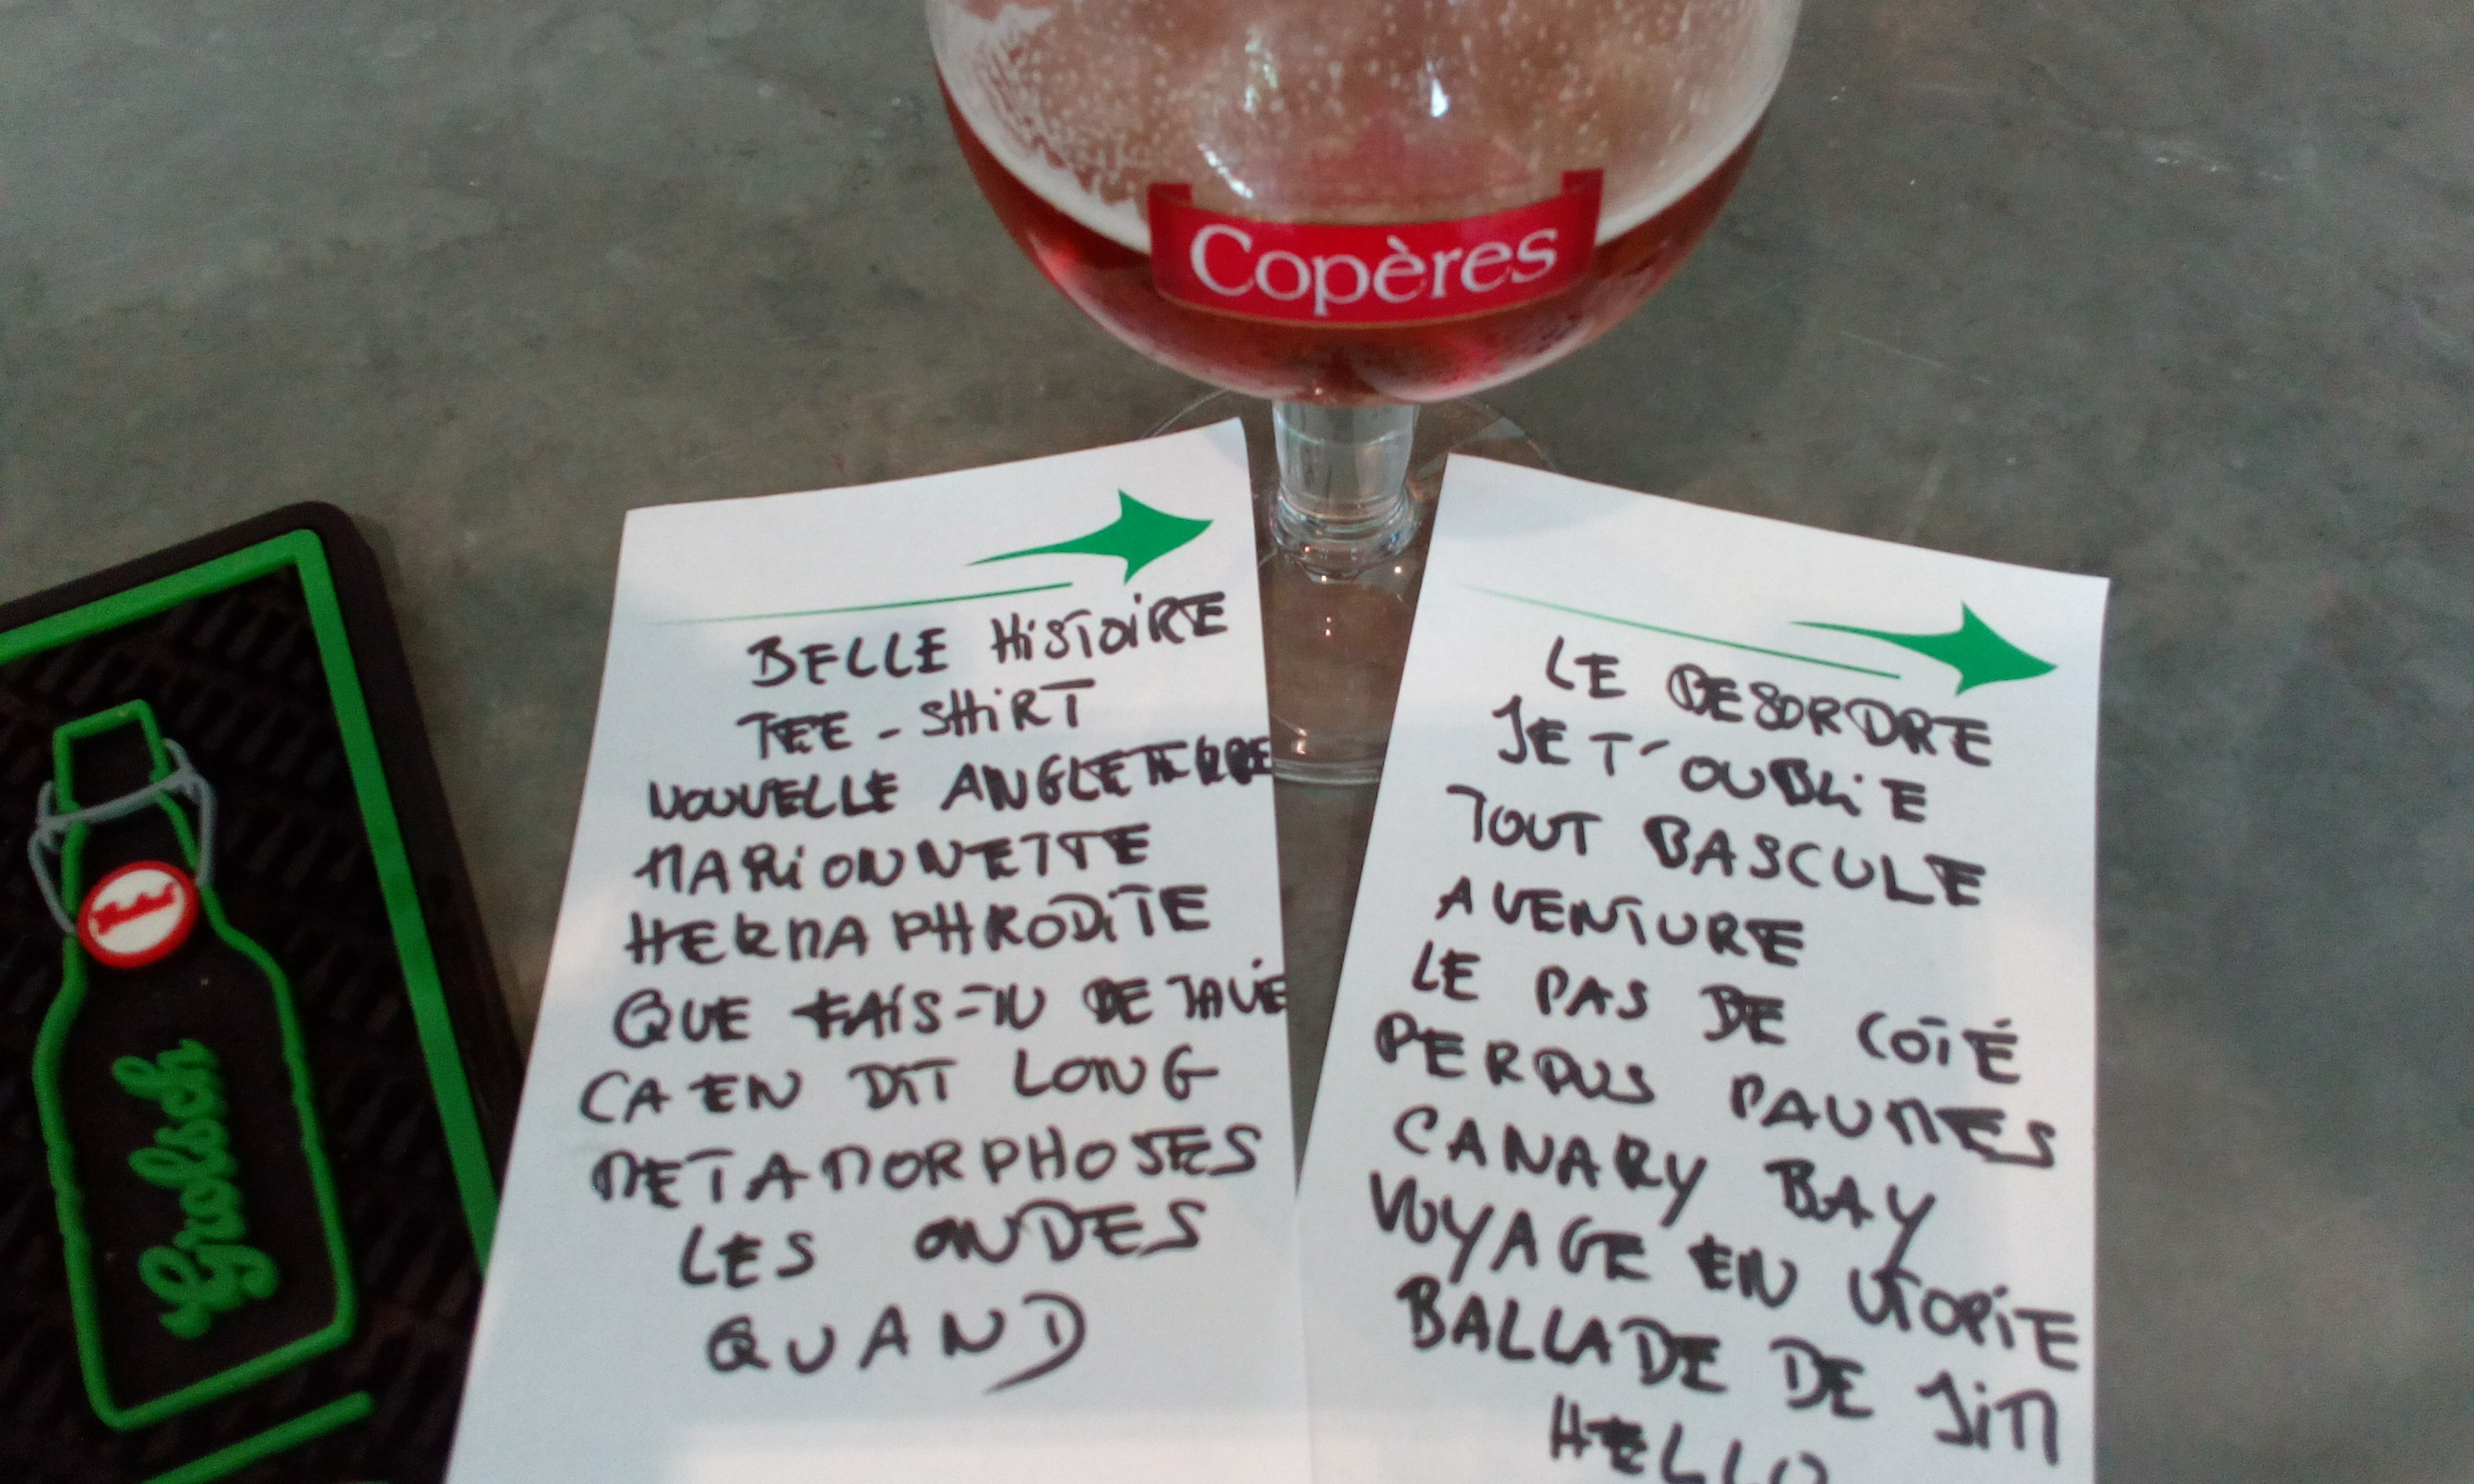 Copères
BELLE HiSTOiRE
TEE - SHiRT
NOUVELLE ANGLETERRE
MARiONNETTE
HERMAPHRODiTE
QUE FAiS-TU DE TA ViE
CA EN DiT LONG
METAMORPHOSES
LES ONDES
QUAND
LE DESORDRE
JE T'OUBLiE
TOUT BASCULE
AVENTURE
LE PAS DE CÔTÉ
PERDUS PAUMES
CANARY BAY
VOYAGE EN UTOPiE
BALLADE DE JiM
HELLO
Grolsch